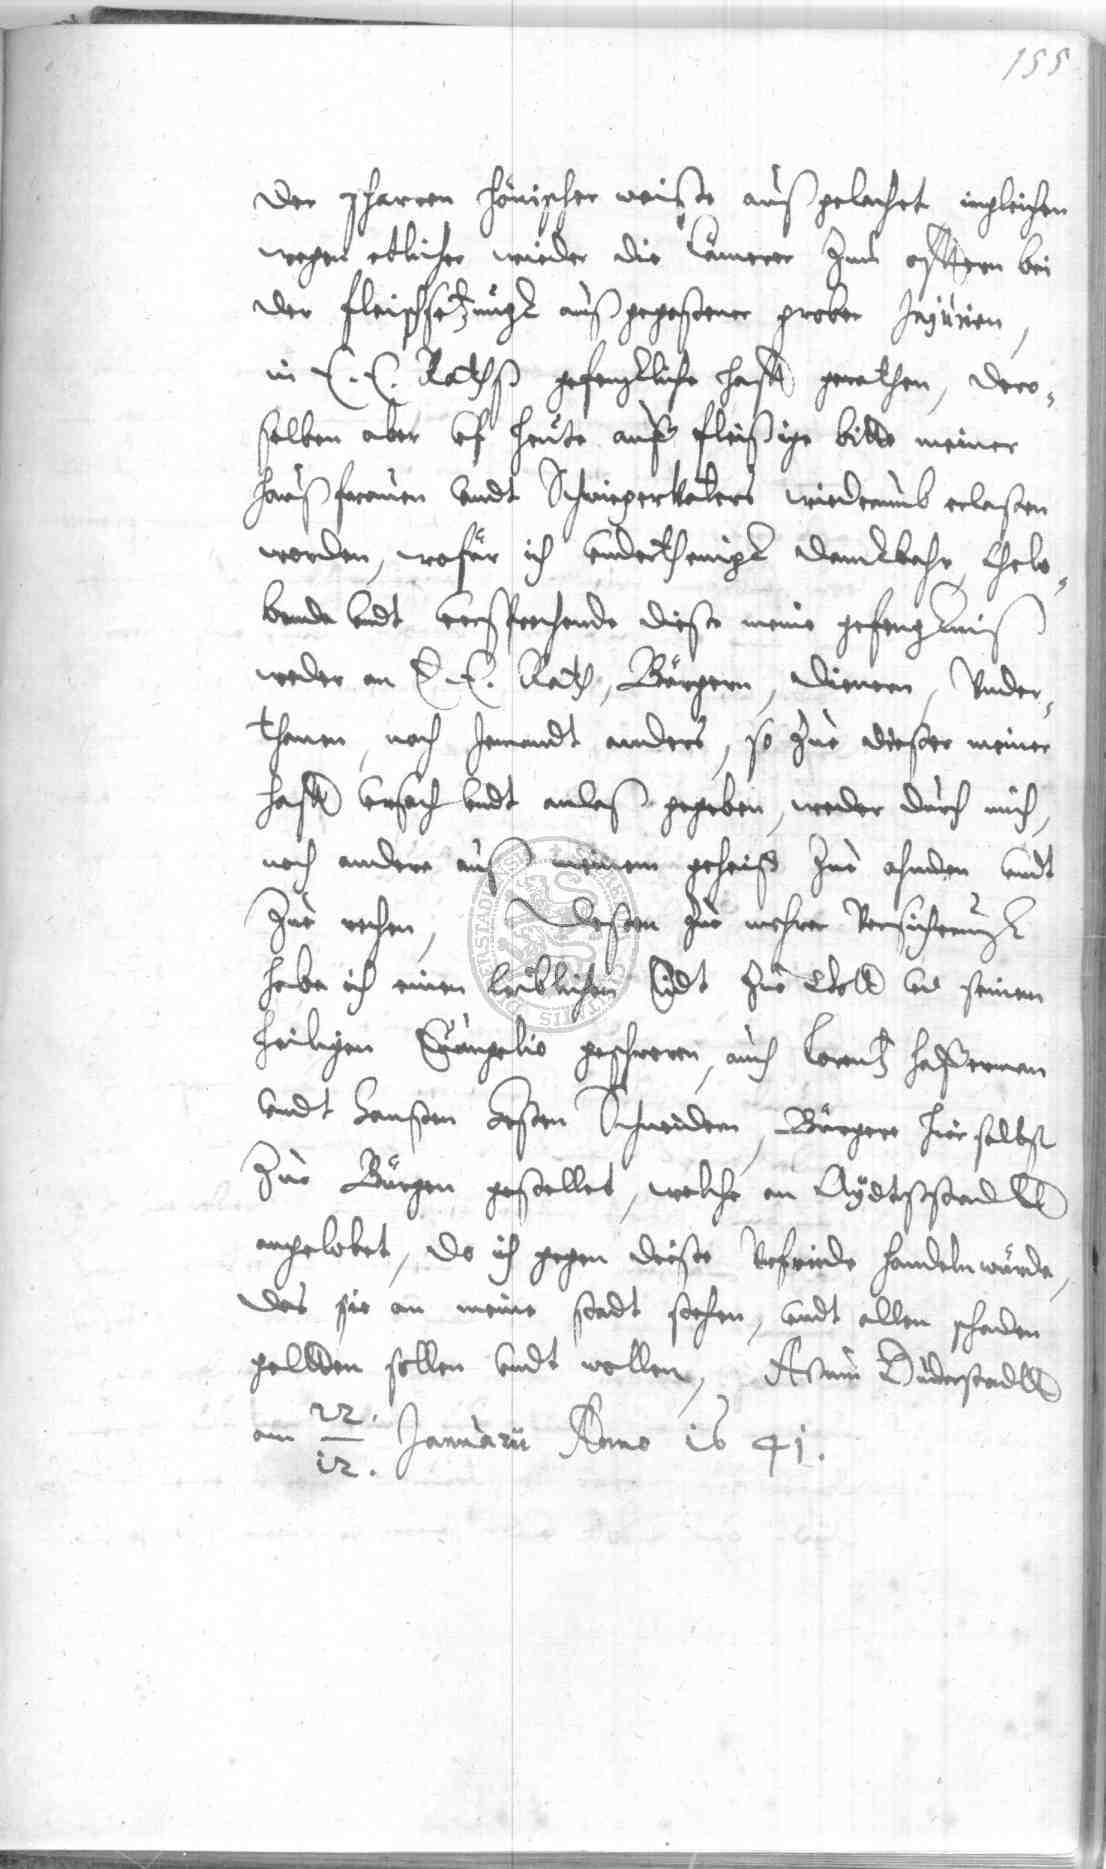 155
der pharren hönischer weiße außgelachet ingleichen
wegen etlicher wieder die Cämerer zum offtern bei
der fleischsetzungk außgegoßener grober Injurien,
in E. E. Rathß gefengkliche hafft gerathen, dero-
selben aber uf heute auff fleißige bitte meiner
haußfrawen undt Schwiegervaters wiederumb erlaßen
worden, wofür ich underthenigk danckbahr, gelo-
bende undt versprechende diese meine gefengkniß
weder an E. E. Rath, Bürgern, Dienern, Under-
thanen, noch Jemandt anders, so zue dießer meiner
hafft ursach undt anlaß gegeben, weder durch mich,
noch andere auß meinem geheiß zue ahnden undt
zue rechen, Deßen zue mehrer Versicherungk
habe ich einen leiblichen Eidt zue Gott und seinem
heiligen Evangelio geschworen, auch Lorentz Haßerman
undt Hanßen Schneidern, Bürgere hierselbst
zue Bürgen gestellet, welche an Aydtsstadtt
angelobet, do ich gegen dieße Urfriede handeln würde,
das sie an meine stadt stehen, undt allen schaden
geltten sollen undt wollen, Actum Duderstadtt
am 22./12. Januarii Anno 1641.